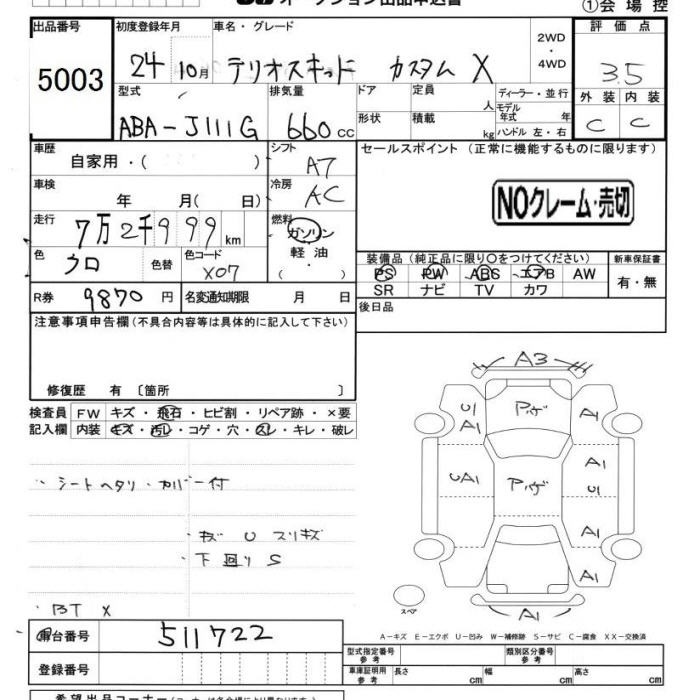 ①会場控
出品番号 初度登録年月 車名・グレード 2WD・4WD 評価点
5003 24 10月 テリオスキッド カスタム X 3.5
型式 排気量 ドア 定員 人 ディーラー・並行 外装 内装
ABA-J111G 660cc 形状 積載 kg モデル年式 年 ハンドル 左・右 C C
車歴 自家用・( ) シフト A7 セールスポイント (正常に機能するものに限ります)
車検 年 月( 日) 冷房 AC
NOクレーム・売切
走行 7万2千999km 燃料 ガソリン 軽油 ( )
色 クロ 色替 色コード X07
装備品 (純正品に限り○をつけてください) 新車保証書
PS PW ABS エアB AW 有・無
SR ナビ TV カワ
R券 9870円 名変通知期限 月 日 後日品
注意事項申告欄(不具合内容等は具体的に記入して下さい)
修復歴 有 〔箇所 〕
検査員 FW キズ・飛石・ヒビ割・リペア跡・×要
記入欄 内装 キズ・汚レ・コゲ・穴・スレ・キレ・破レ
・シートヘタリ・カバー付
・キズ U スリキズ
・下回り S
・BT X
A3
A1
U
A1
A1
UA1
U
A1
A1
A1
スペア
A-キズ E-エクボ U-凹み W-補修跡 S-サビ C-腐食 XX-交換済
車台番号 511722
登録番号
型式指定番号 参考 類別区分番号 参考
車庫証明用 参考 長さ cm 幅 cm 高さ cm